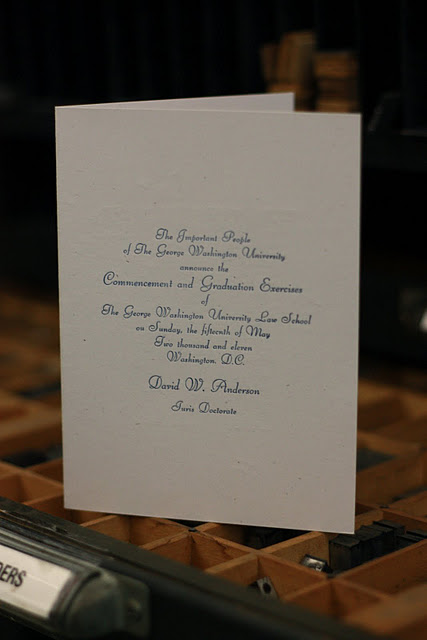 The Important People
of The George Washington University
announce the
Commencement and Graduation Exercises
of
The George Washington University Law School
on Sunday, the fifteenth of May
Two thousand and eleven
Washington, D.C.
David W. Anderson
Juris Doctorate
DERS